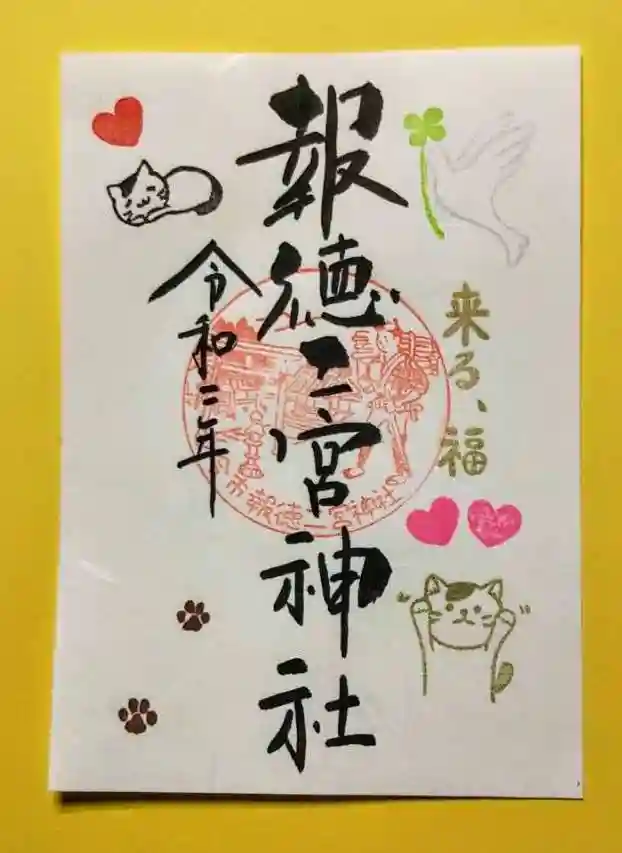 来る、福
報徳二宮神社
令和二年
市報徳二宮神社